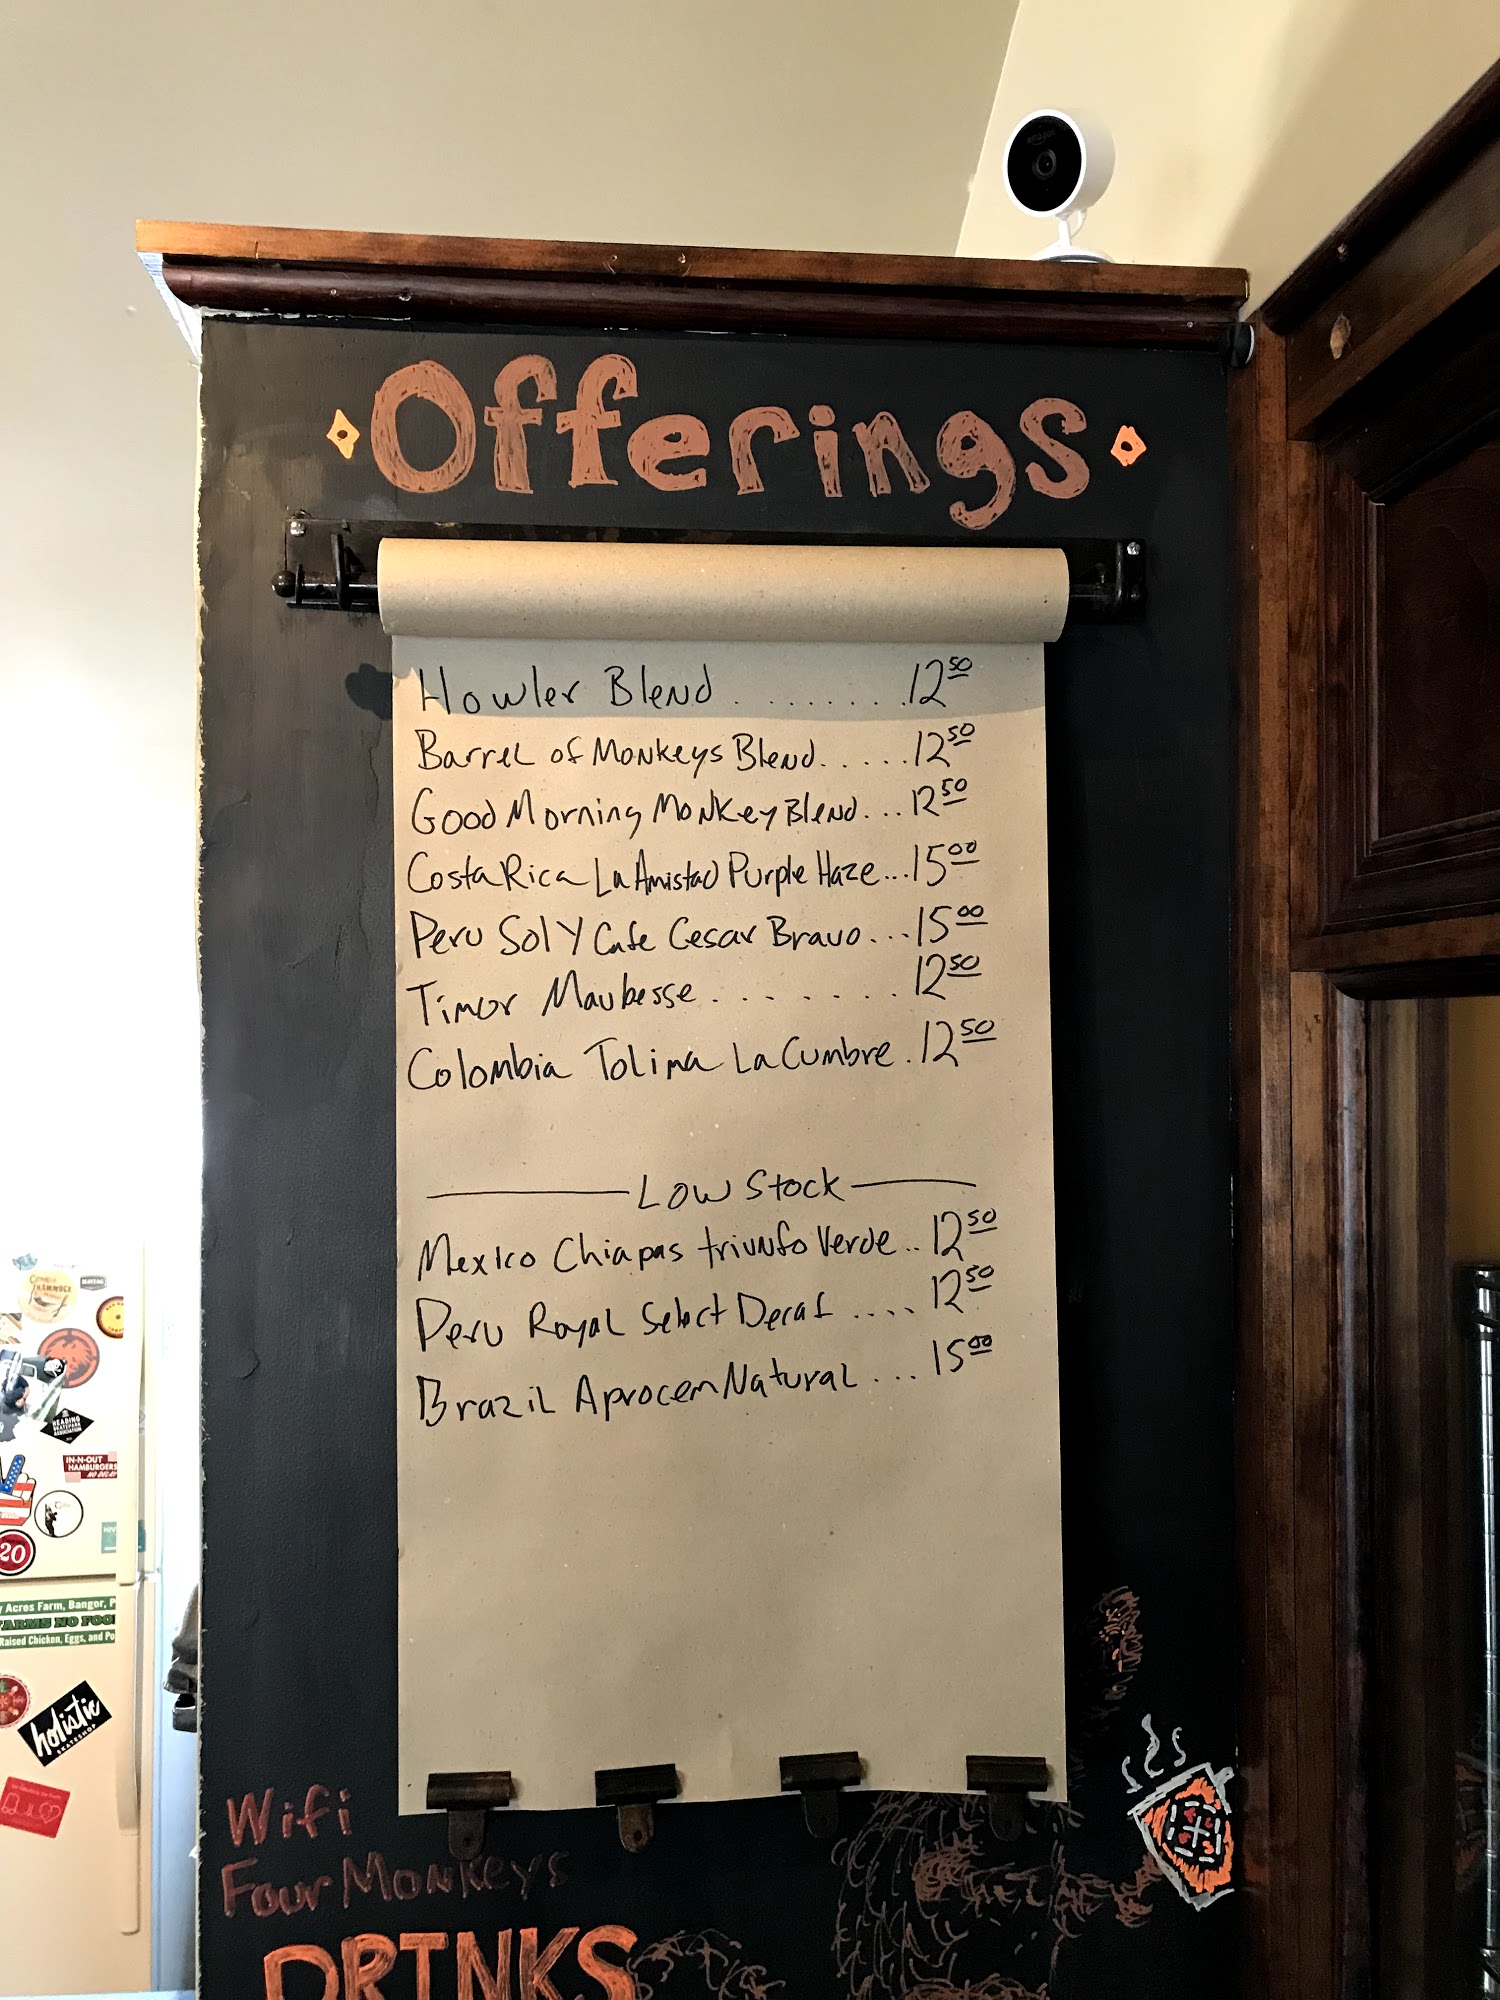 Offerings
Howler Blend ........ 12 50
Barrel of Monkeys Blend ..... 12 50
Good Morning Monkey Blend ... 12 50
Costa Rica La Amistad Purple Haze ... 15 00
Peru Sol Y Cafe Cesar Bravo ... 15 00
Timor Maubesse ........ 12 50
Colombia Tolima La Cumbre . 12 50
Low Stock
Mexico Chiapas triunfo Verde .. 12 50
Peru Royal Select Decaf .... 12 50
Brazil Aprocem Natural ... 15 00
Wifi
Four Monkeys
DRINKS
HAMMOCK
READING
SKATEPARK
ASSOCIATION
IN-N-OUT
HAMBURGERS
NO DELAY
20
Acres Farm, Bangor, P
FARMS NO FOO
Raised Chicken, Eggs, and Po
holistic
SKATESHOP